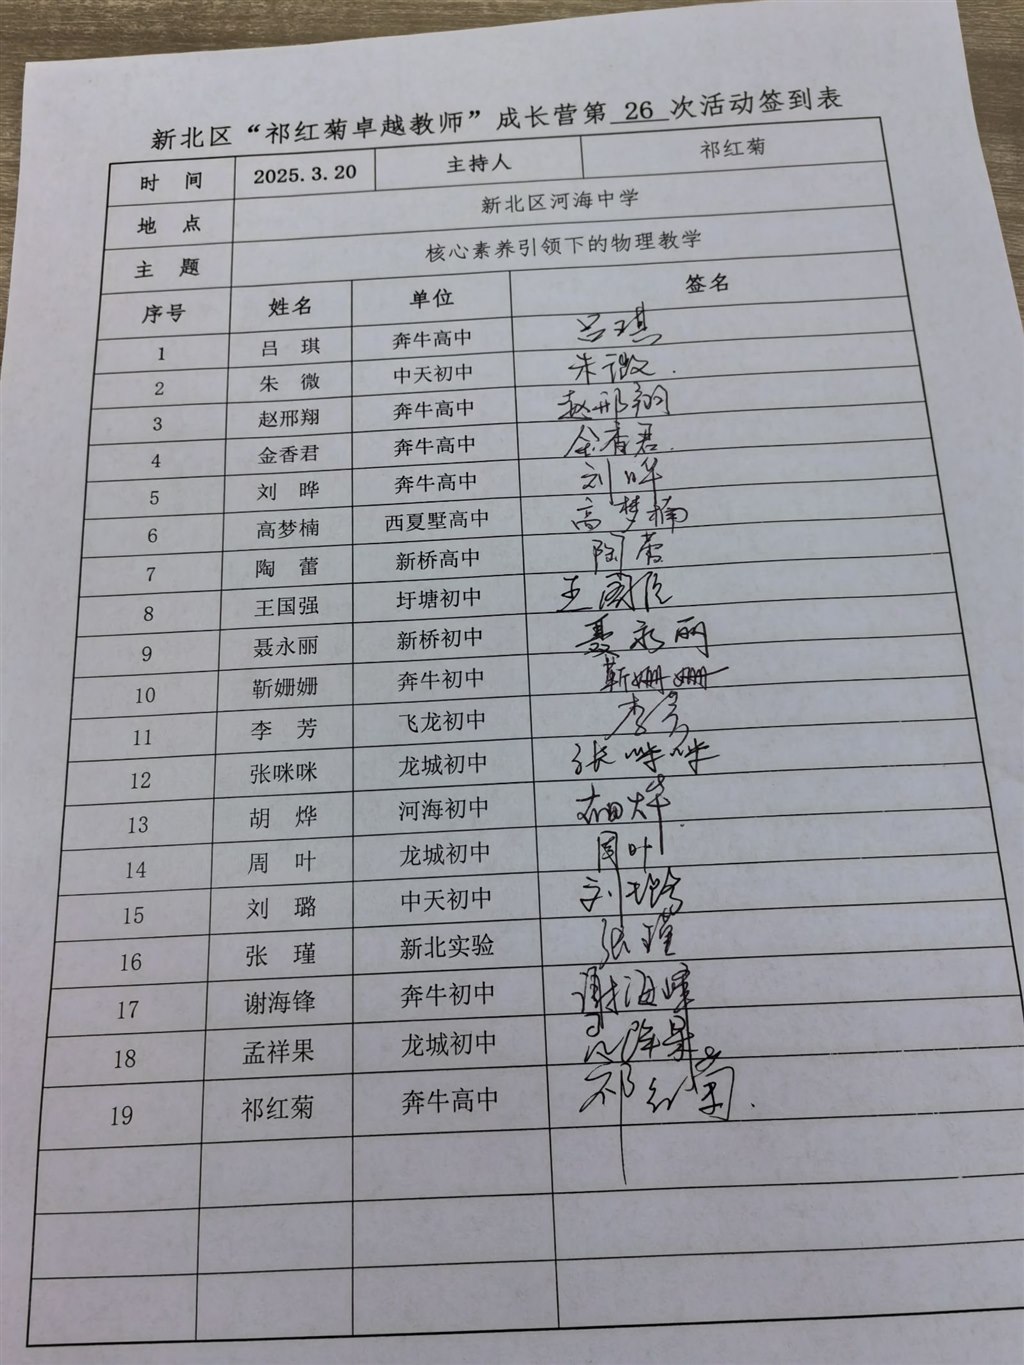 新北区“祁红菊卓越教师”成长营第 26 次活动签到表
时 间 2025.3.20 主持人 祁红菊
地 点 新北区河海中学
主 题 核心素养引领下的物理教学
序号 姓名 单位 签名
1 吕 琪 奔牛高中 吕琪
2 朱 微 中天初中 朱微.
3 赵邢翔 奔牛高中 赵邢翔
4 金香君 奔牛高中 金香君.
5 刘 晔 奔牛高中 刘晔
6 高梦楠 西夏墅高中 高梦楠
7 陶 蕾 新桥高中 陶蕾
8 王国强 圩塘初中 王国强
9 聂永丽 新桥初中 聂永丽
10 靳姗姗 奔牛初中 靳姗姗
11 李 芳 飞龙初中 李芳
12 张咪咪 龙城初中 张咪咪
13 胡 烨 河海初中 胡烨.
14 周 叶 龙城初中 周叶
15 刘 璐 中天初中 刘璐
16 张 瑾 新北实验 张瑾
17 谢海锋 奔牛初中 谢海峰
18 孟祥果 龙城初中 孟祥果
19 祁红菊 奔牛高中 祁红菊.